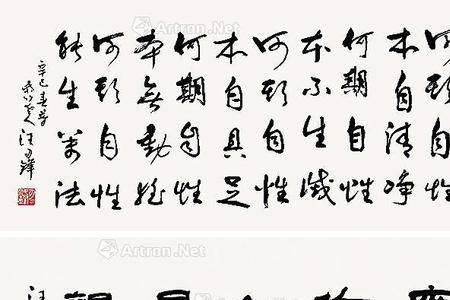 何期自性
本自清净
何期自性
本不生滅
何期自性
本自具足
何期自性
本無動摇
何期自性
能生萬法
辛巳春
汪
Artron.Net
Artron.Net
Artron.Net
Artron.Net